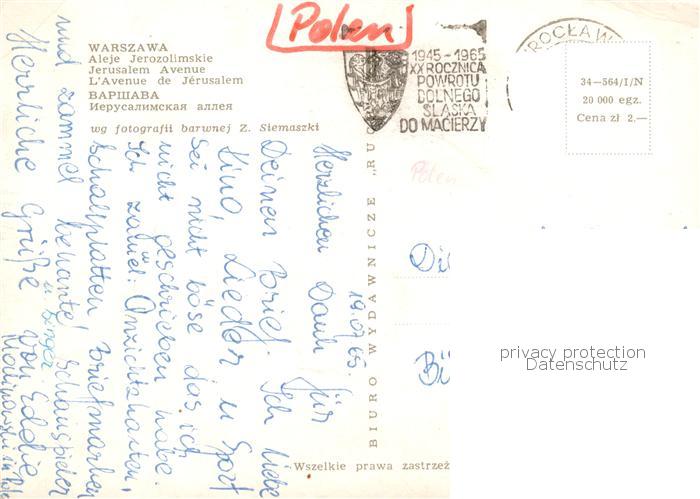 [Polen]
WARSZAWA
Aleje Jerozolimskie
Jerusalem Avenue
L'Avenue de Jérusalem
ВАРШАВА
Иерусалимская аллея
wg fotografii barwnej Z. Siemaszki
1945-1965
XX ROCZNICA
POWROTU
DOLNEGO
ŚLĄSKA
DO MACIERZY
ROCŁAW
34-564/I/N
20 000 egz.
Cena zł 2.—
Polen
BIURO WYDAWNICZE „RUC
19.07.65.
Herzlichen Dank für
Deinen Brief. Ich liebe
Kino, Lieder, u Sport
Sei nicht böse das ich
nicht geschrieben habe.
Ich zamel: Anzichtskarten,
Schallplatten, Briefmarken
und zammel bekante Schauspieler
u Singer
Herrliche Grüße von Eddie
Wszelkie prawa zastrzeż
privacy protection
Datenschutz